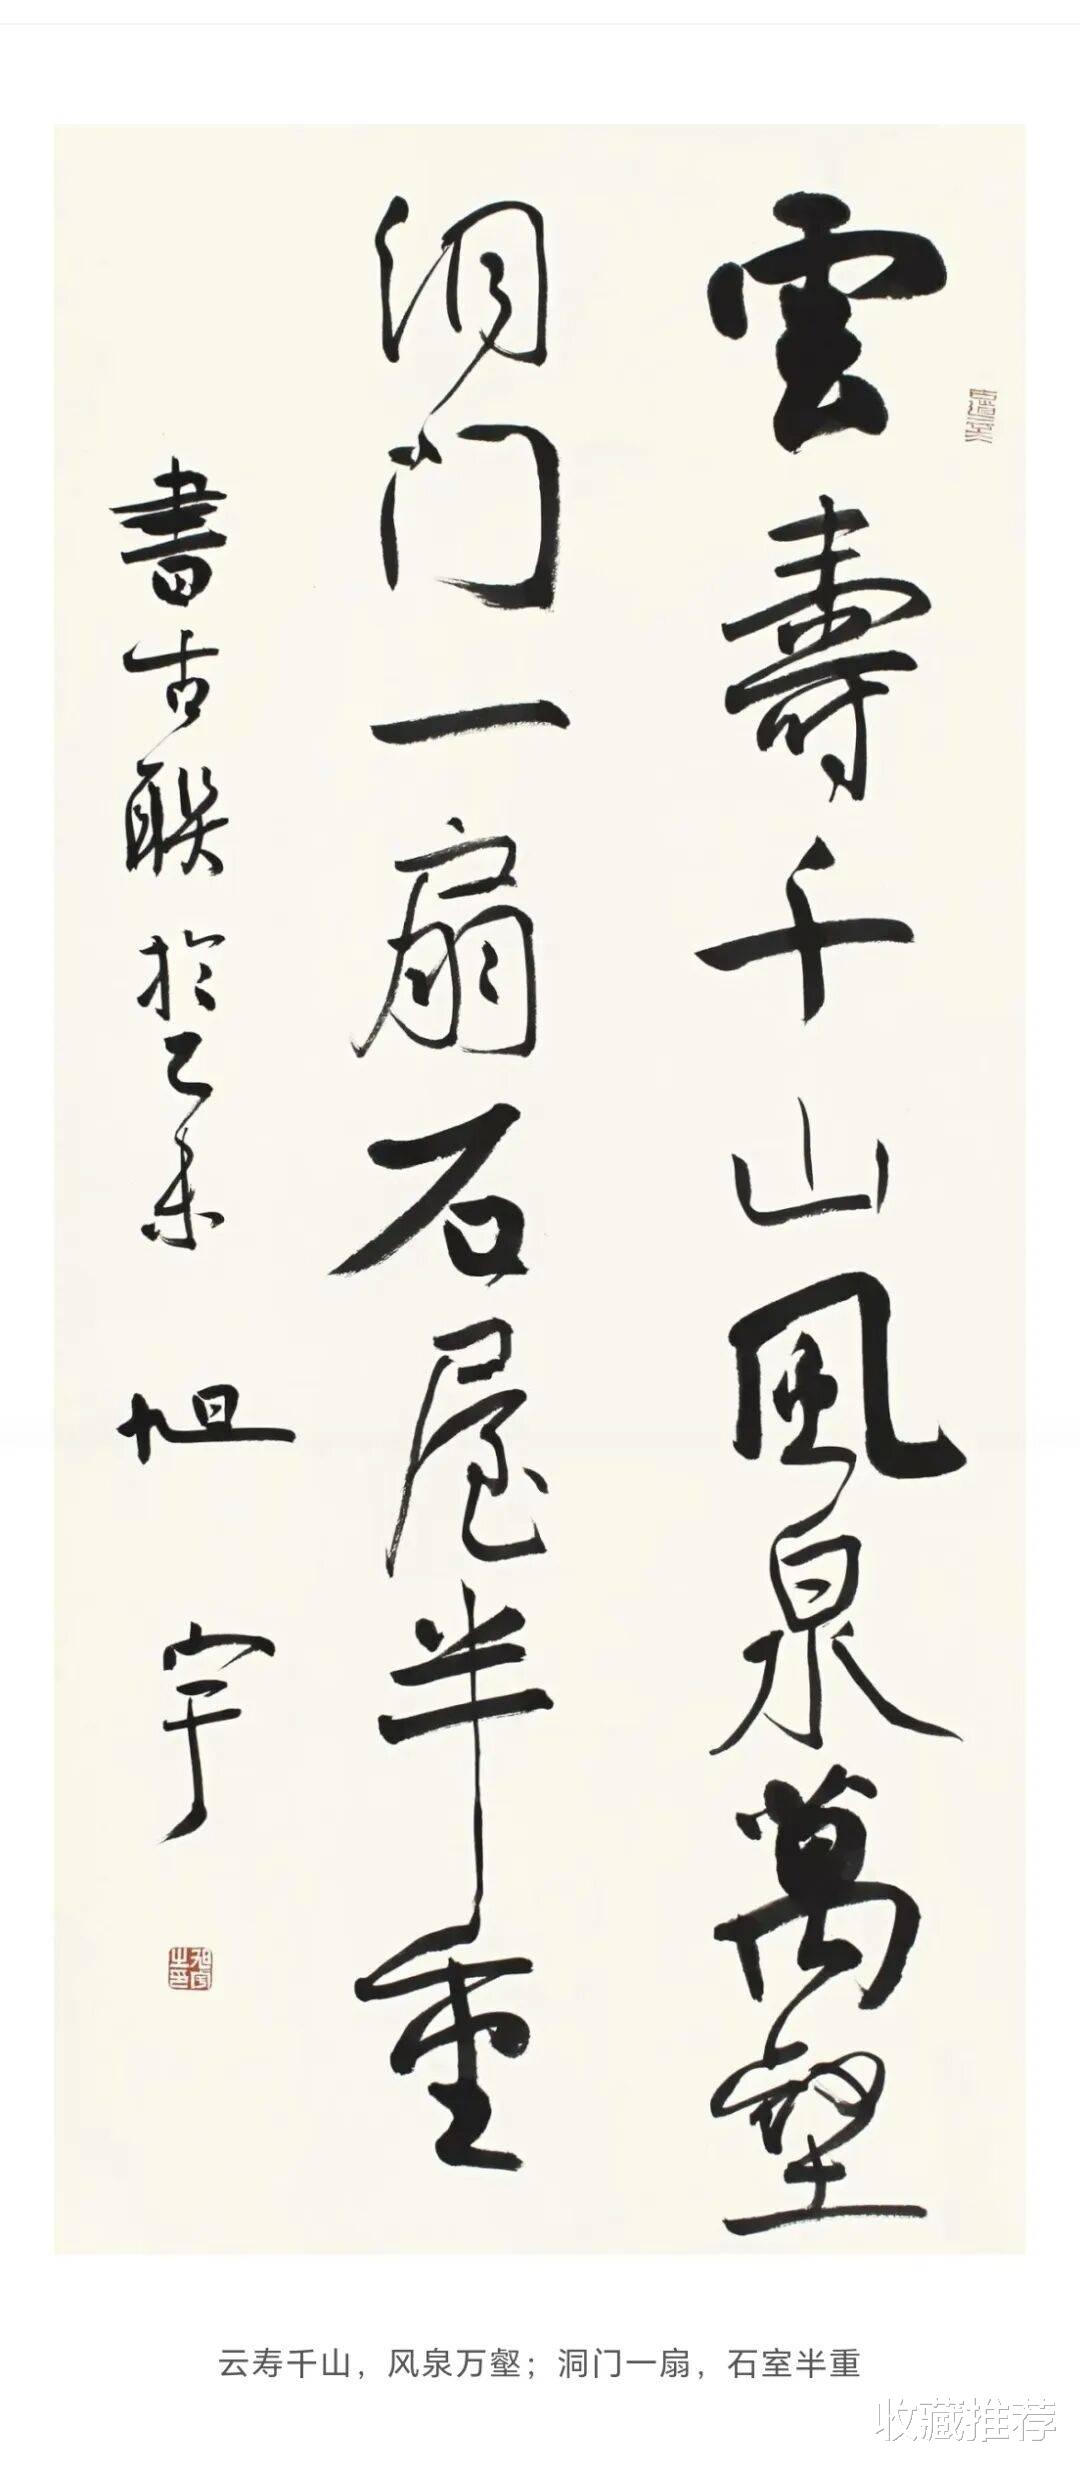 雲壽千山風泉萬壑
洞门一扇石屋半重
書古聯於乙未
旭宇
旭宇之印
云寿千山，风泉万壑；洞门一扇，石室半重
收藏推荐